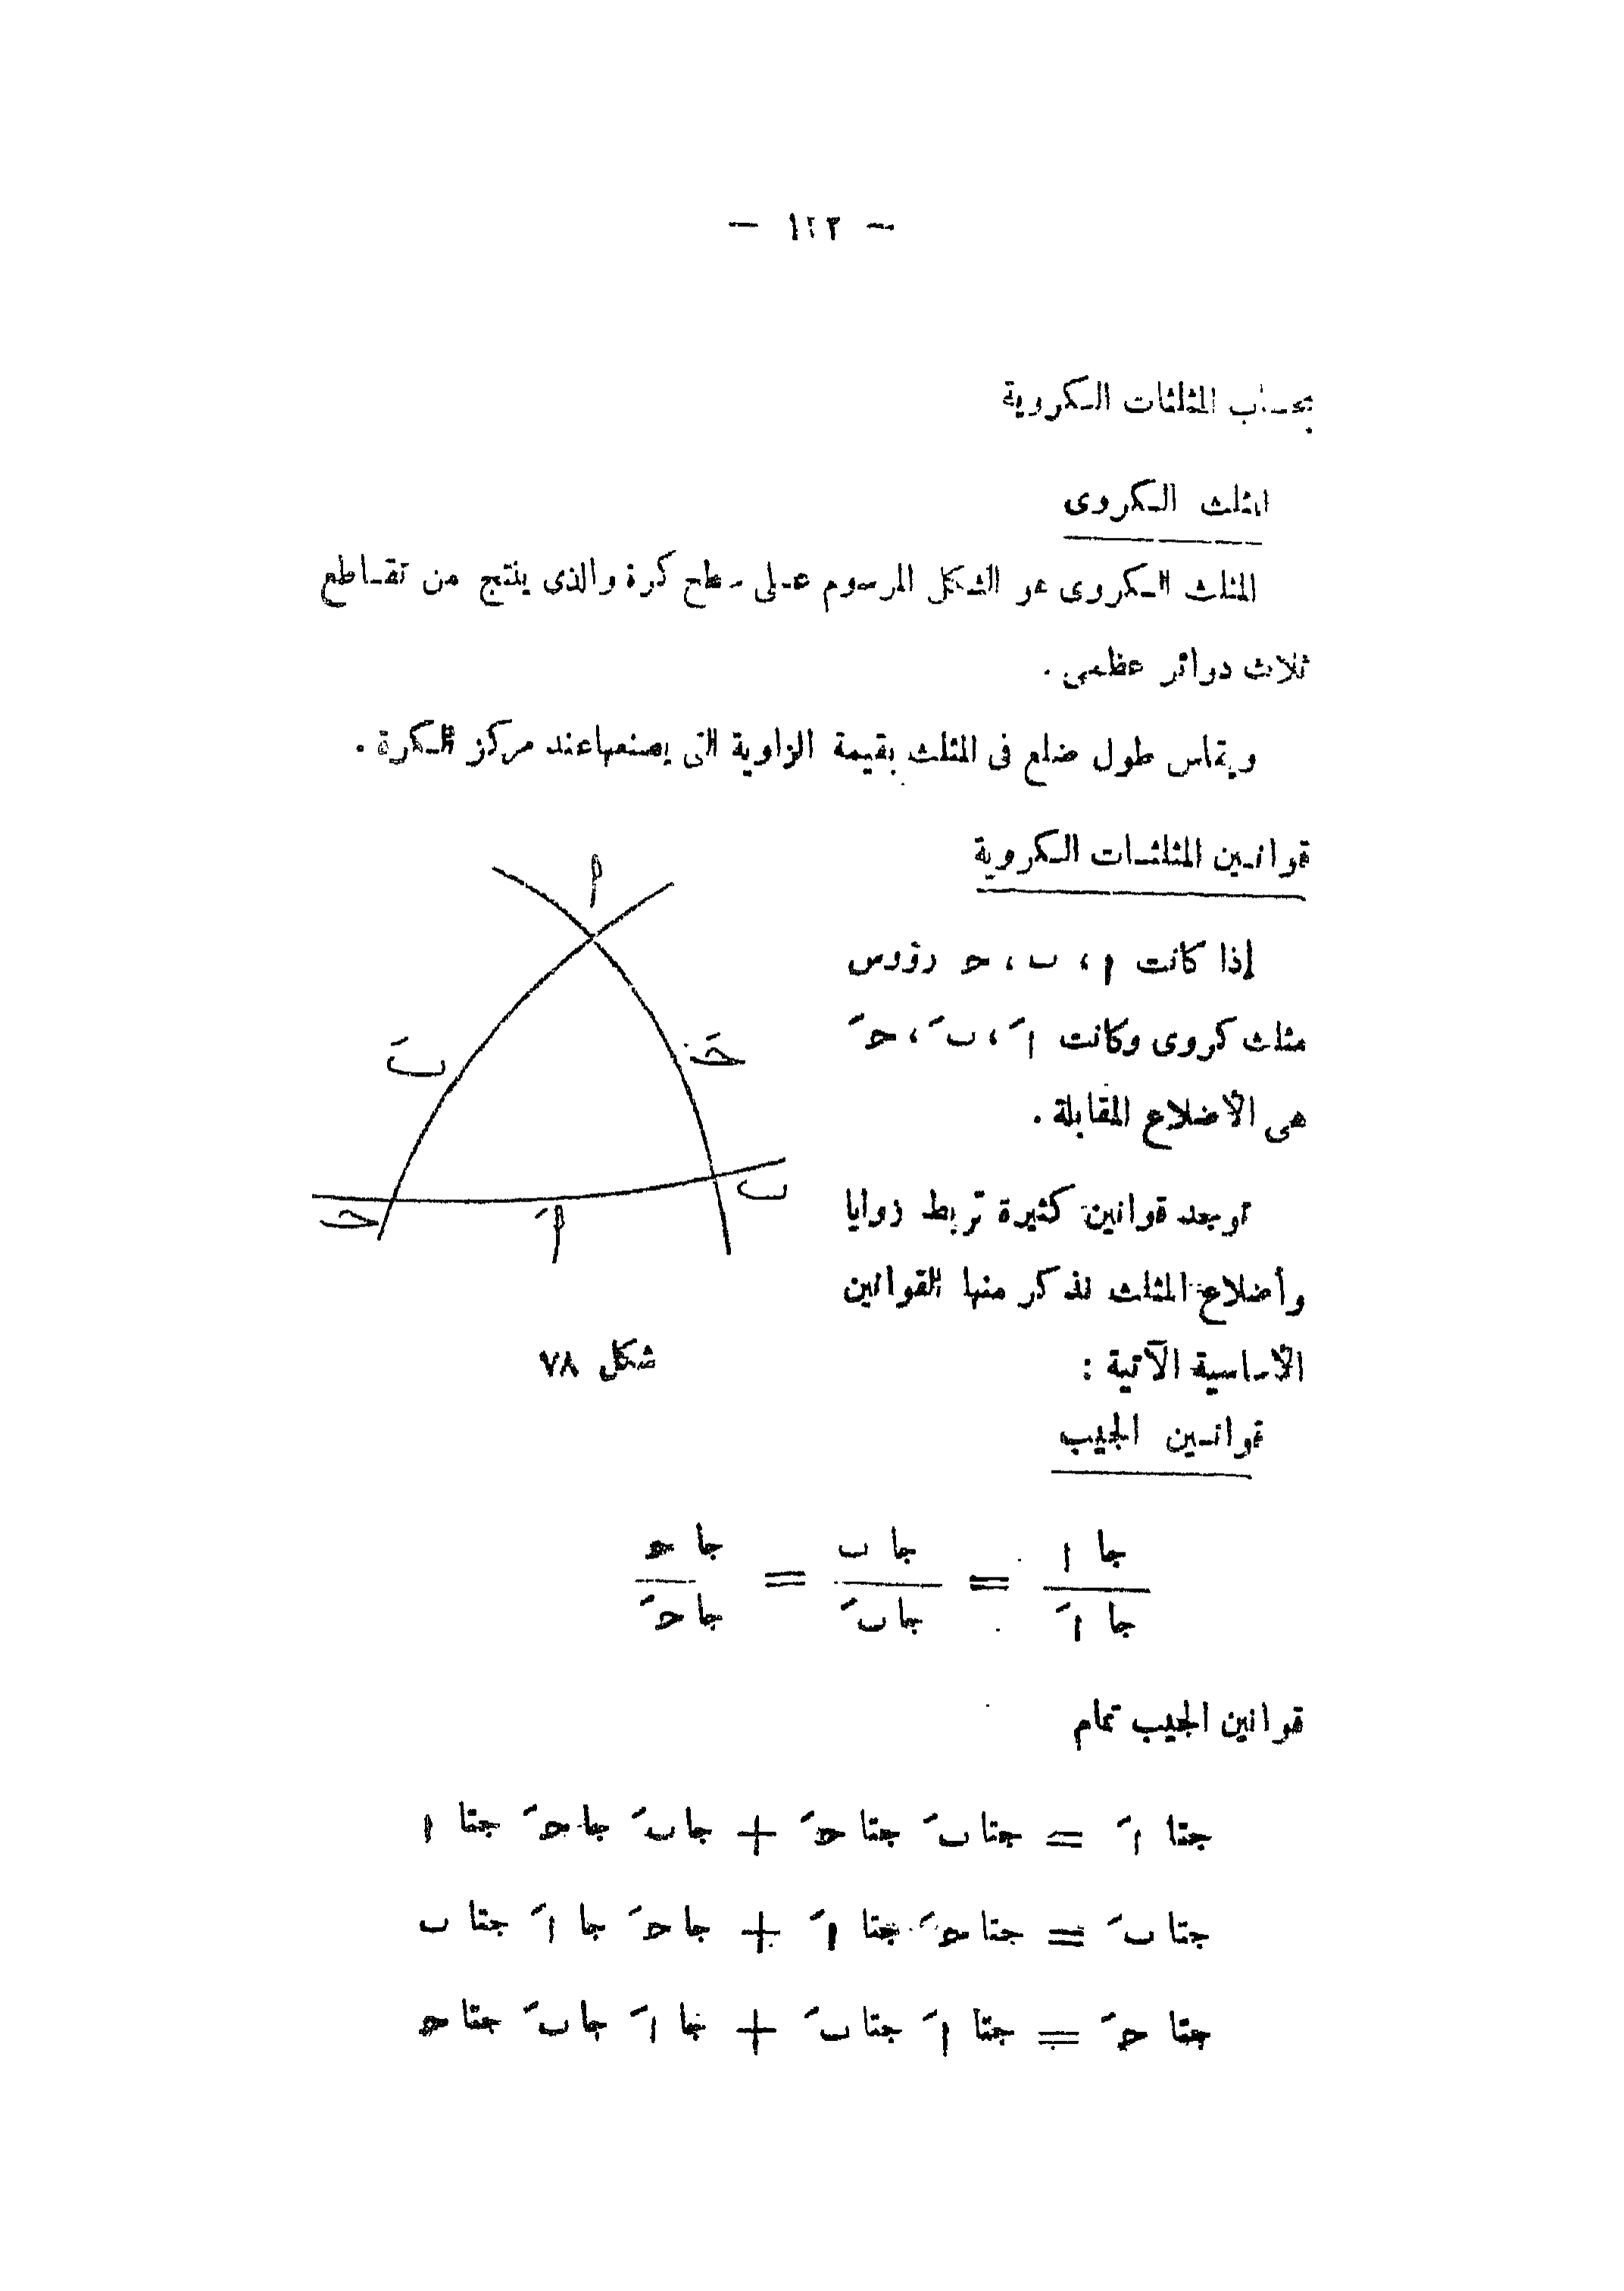 — ١٢٣ —
بحساب المثلثات الكروية
المثلث الكروى
المثلث الكروى هو الشكل المرسوم على سطح كرة والذى ينتج من تقاطع
ثلاث دوائر عظمى .
ويقاس طول ضلع فى المثلث بقيمة الزاوية التى يصنعها عند مركز الكرة .
قوانين المثلثات الكروية
إذا كانت ا ، ب ، ح رؤوس
مثلث كروى وكانت اَ ، بَ ، حَ
هى الأضلاع المقابلة .
توجد قوانين كثيرة تربط زوايا
وأضلاع المثلث نذكر منها القوانين
الأساسية الآتية :
ا
بَ
حَ
ب
ح
اَ
شكل ٧٨
قوانين الجيب
جا ا / جا اَ = جا ب / جا بَ = جا ح / جا حَ
قوانين الجيب تمام
جتا اَ = جتا بَ جتا حَ + جا بَ جا حَ جتا ا
جتا بَ = جتا حَ جتا اَ + جا حَ جا اَ جتا ب
جتا حَ = جتا اَ جتا بَ + جا اَ جا بَ جتا ح